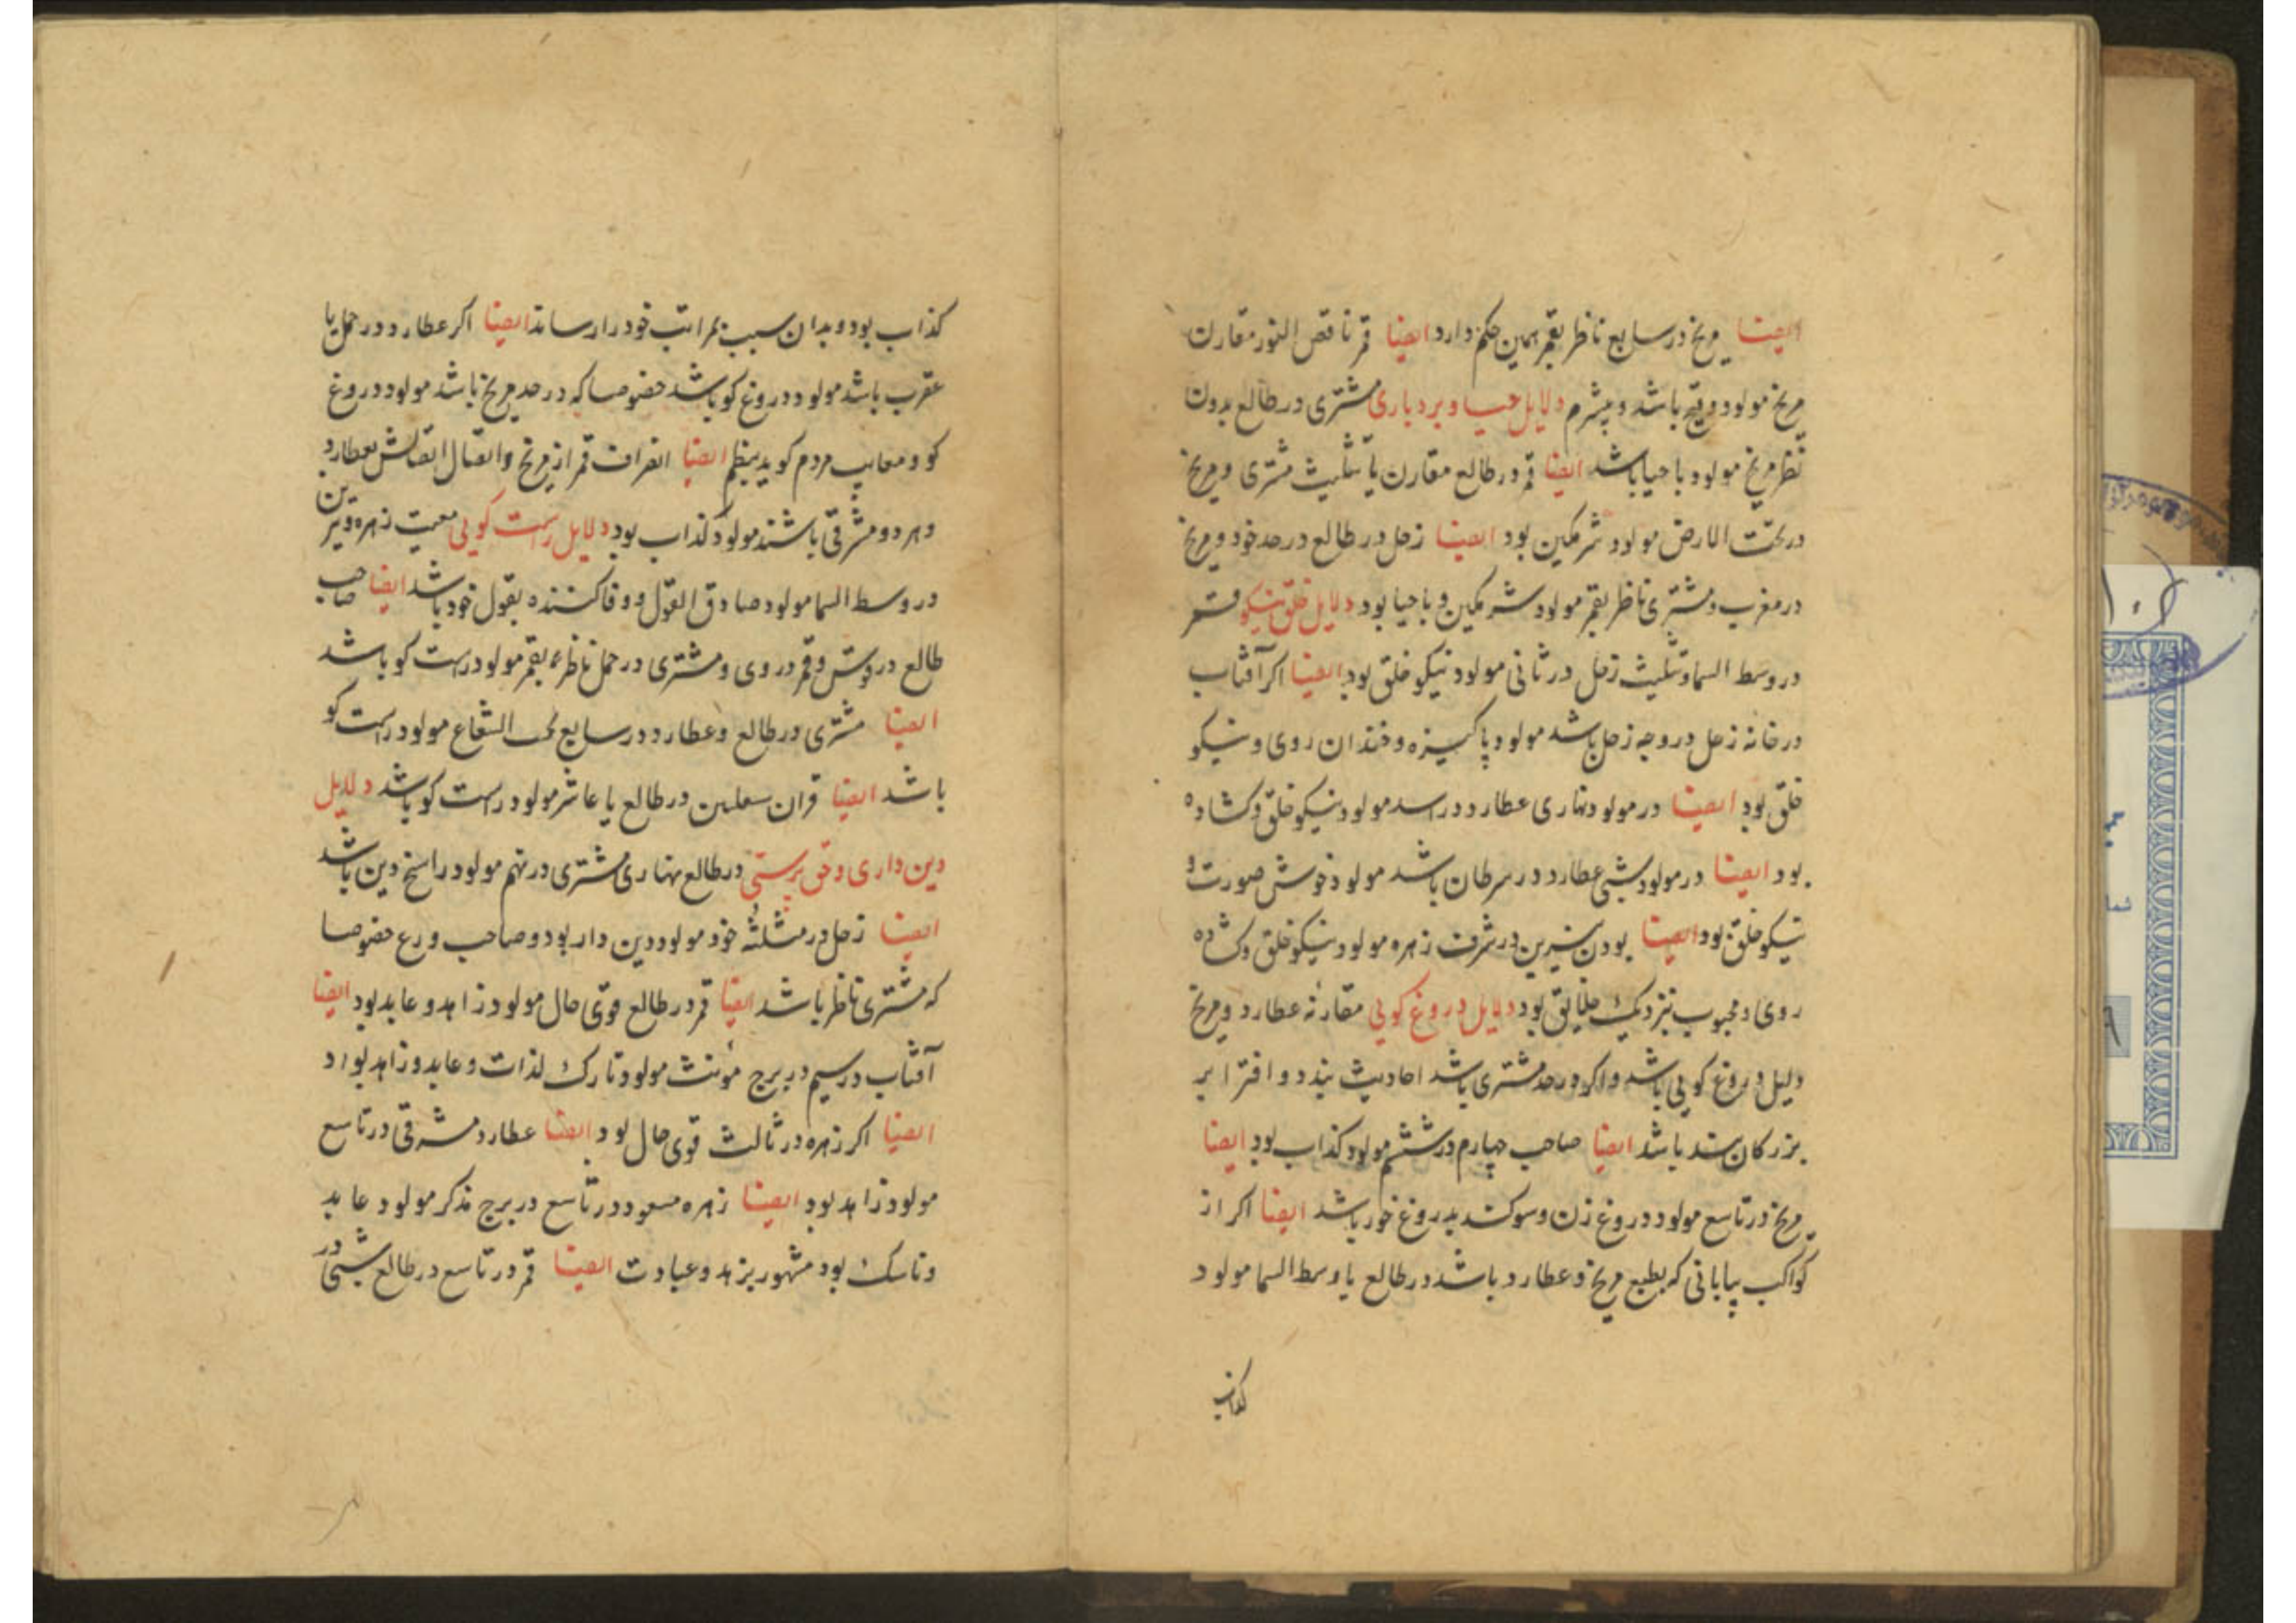 ایضا مریخ در سابع ناظر بقمر همین حکم دارد ایضا قمر ناقص النور مقارن
مریخ مولود وقیح باشد و بیشرم دلایل حیا و بردباری مشتری در طالع بدون
نظر مریخ مولود با حیا باشد ایضا قمر در طالع مقارن یا تثلیث مشتری و مریخ
در تحت الارض مولود شرمکین بود ایضا زحل در طالع در حد خود و مریخ
در مغرب و مشتری ناظر بقمر مولود شرمکین و با حیا بود دلایل خلق نیکو قمر
در وسط السما و تثلیث زحل در ثانی مولود نیکو خلق بود ایضا اکر آفتاب
در خانه زحل در وجه زحل باشد مولود پاکیزه و خندان روی و نیکو
خلق بود ایضا در مولود نهاری عطارد در اسد مولود نیکو خلق و کشاده
بود ایضا در مولود شبی عطارد در سرطان باشد مولود خوش صورت و
نیکو خلق بود ایضا بودن نیرین در شرف زهره مولود نیکو خلق و کشاده
روی و محبوب نزدیک خلایق بود دلایل دروغ کویی مقارنه عطارد و مریخ
دلیل دروغ کویی باشد و اکر در حد مشتری باشد احادیث بندد و افترا بر
بزرکان بندد باشد ایضا صاحب چهارم در ششم مولود کذاب بود ایضا
مریخ در تاسع مولود دروغ زن و سوکند بدروغ خور باشد ایضا اکر از
کواکب بیابانی که بطبع مریخ و عطارد باشد در طالع یا وسط السما مولود
کذاب
کذاب بود و بدان سبب بمراتب خود را رساند ایضا اکر عطارد در حمل یا
عقرب باشد مولود دروغ کو باشد خصوصا که در حد مریخ باشد مولود دروغ
کو و معایب مردم کوید بنظم ایضا انصراف قمر از مریخ و اتصالش بعطارد
و هر دو مشرقی باشند مولود کذاب بود دلایل راست کویی معیت زهره و نیرین
در وسط السما مولود صادق القول و وفا کننده بقول خود باشد ایضا صاحب
طالع در قوس و قمر در وی و مشتری در حمل ناظر بقمر مولود راست کو باشد
ایضا مشتری در طالع و عطارد در سابع تحت الشعاع مولود راست کو
باشد ایضا قران سعدین در طالع یا عاشر مولود راست کو باشد دلایل
دین داری و حق پرستی در طالع نهاری مشتری در نهم مولود راسخ دین باشد
ایضا زحل در مثلثه خود مولود دین دار بود و صاحب ورع خصوصا
که مشتری ناظر باشد ایضا قمر در طالع قوی حال مولود زاهد و عابد بود ایضا
آفتاب در سیم در برج مونث مولود تارک لذات و عابد و زاهد بود
ایضا اکر زهره در ثالث قوی حال بود ایضا عطارد مشرقی در تاسع
مولود زاهد بود ایضا زهره مسعود در تاسع در برج مذکر مولود عابد
و ناسک بود مشهور بزهد و عبادت ایضا قمر در تاسع در طالع شبی در